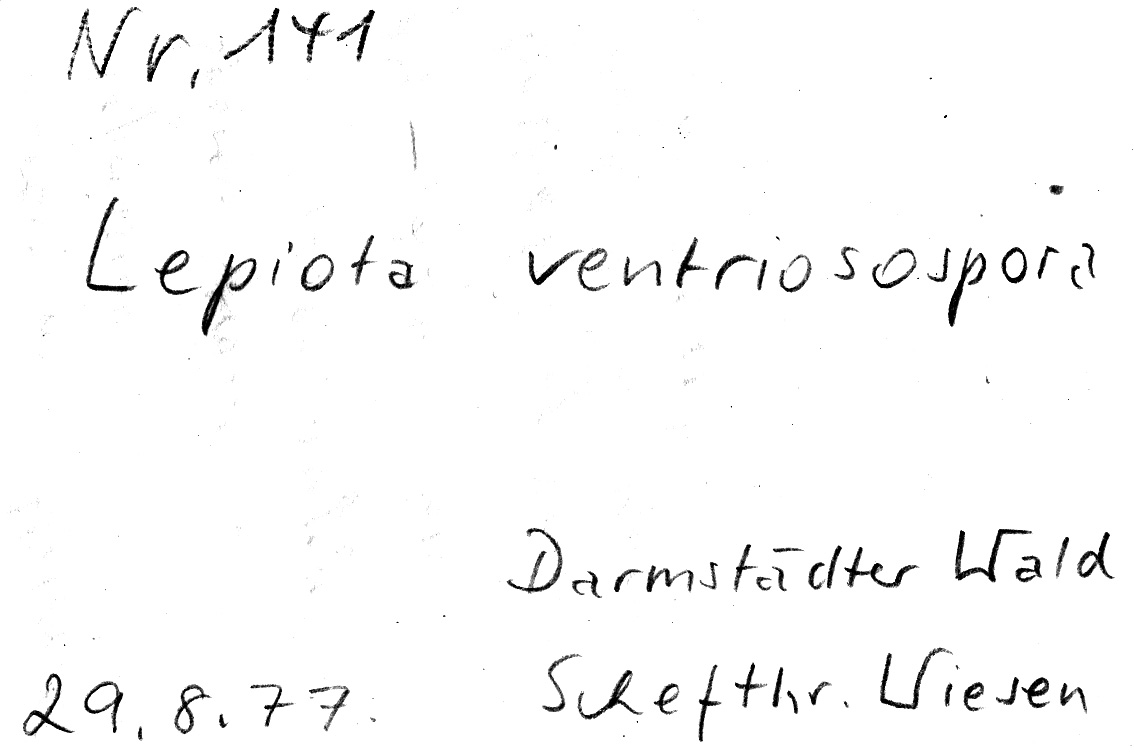 Nr. 141
Lepiota ventriosospora
Darmstädter Wald
29.8.77. Schefthr. Wiesen